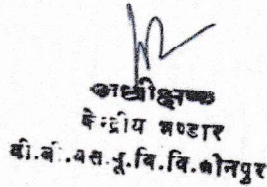 अधीक्षक
केन्द्रीय भण्डार
वी.ब.स.पू.वि.वि.जौनपुर